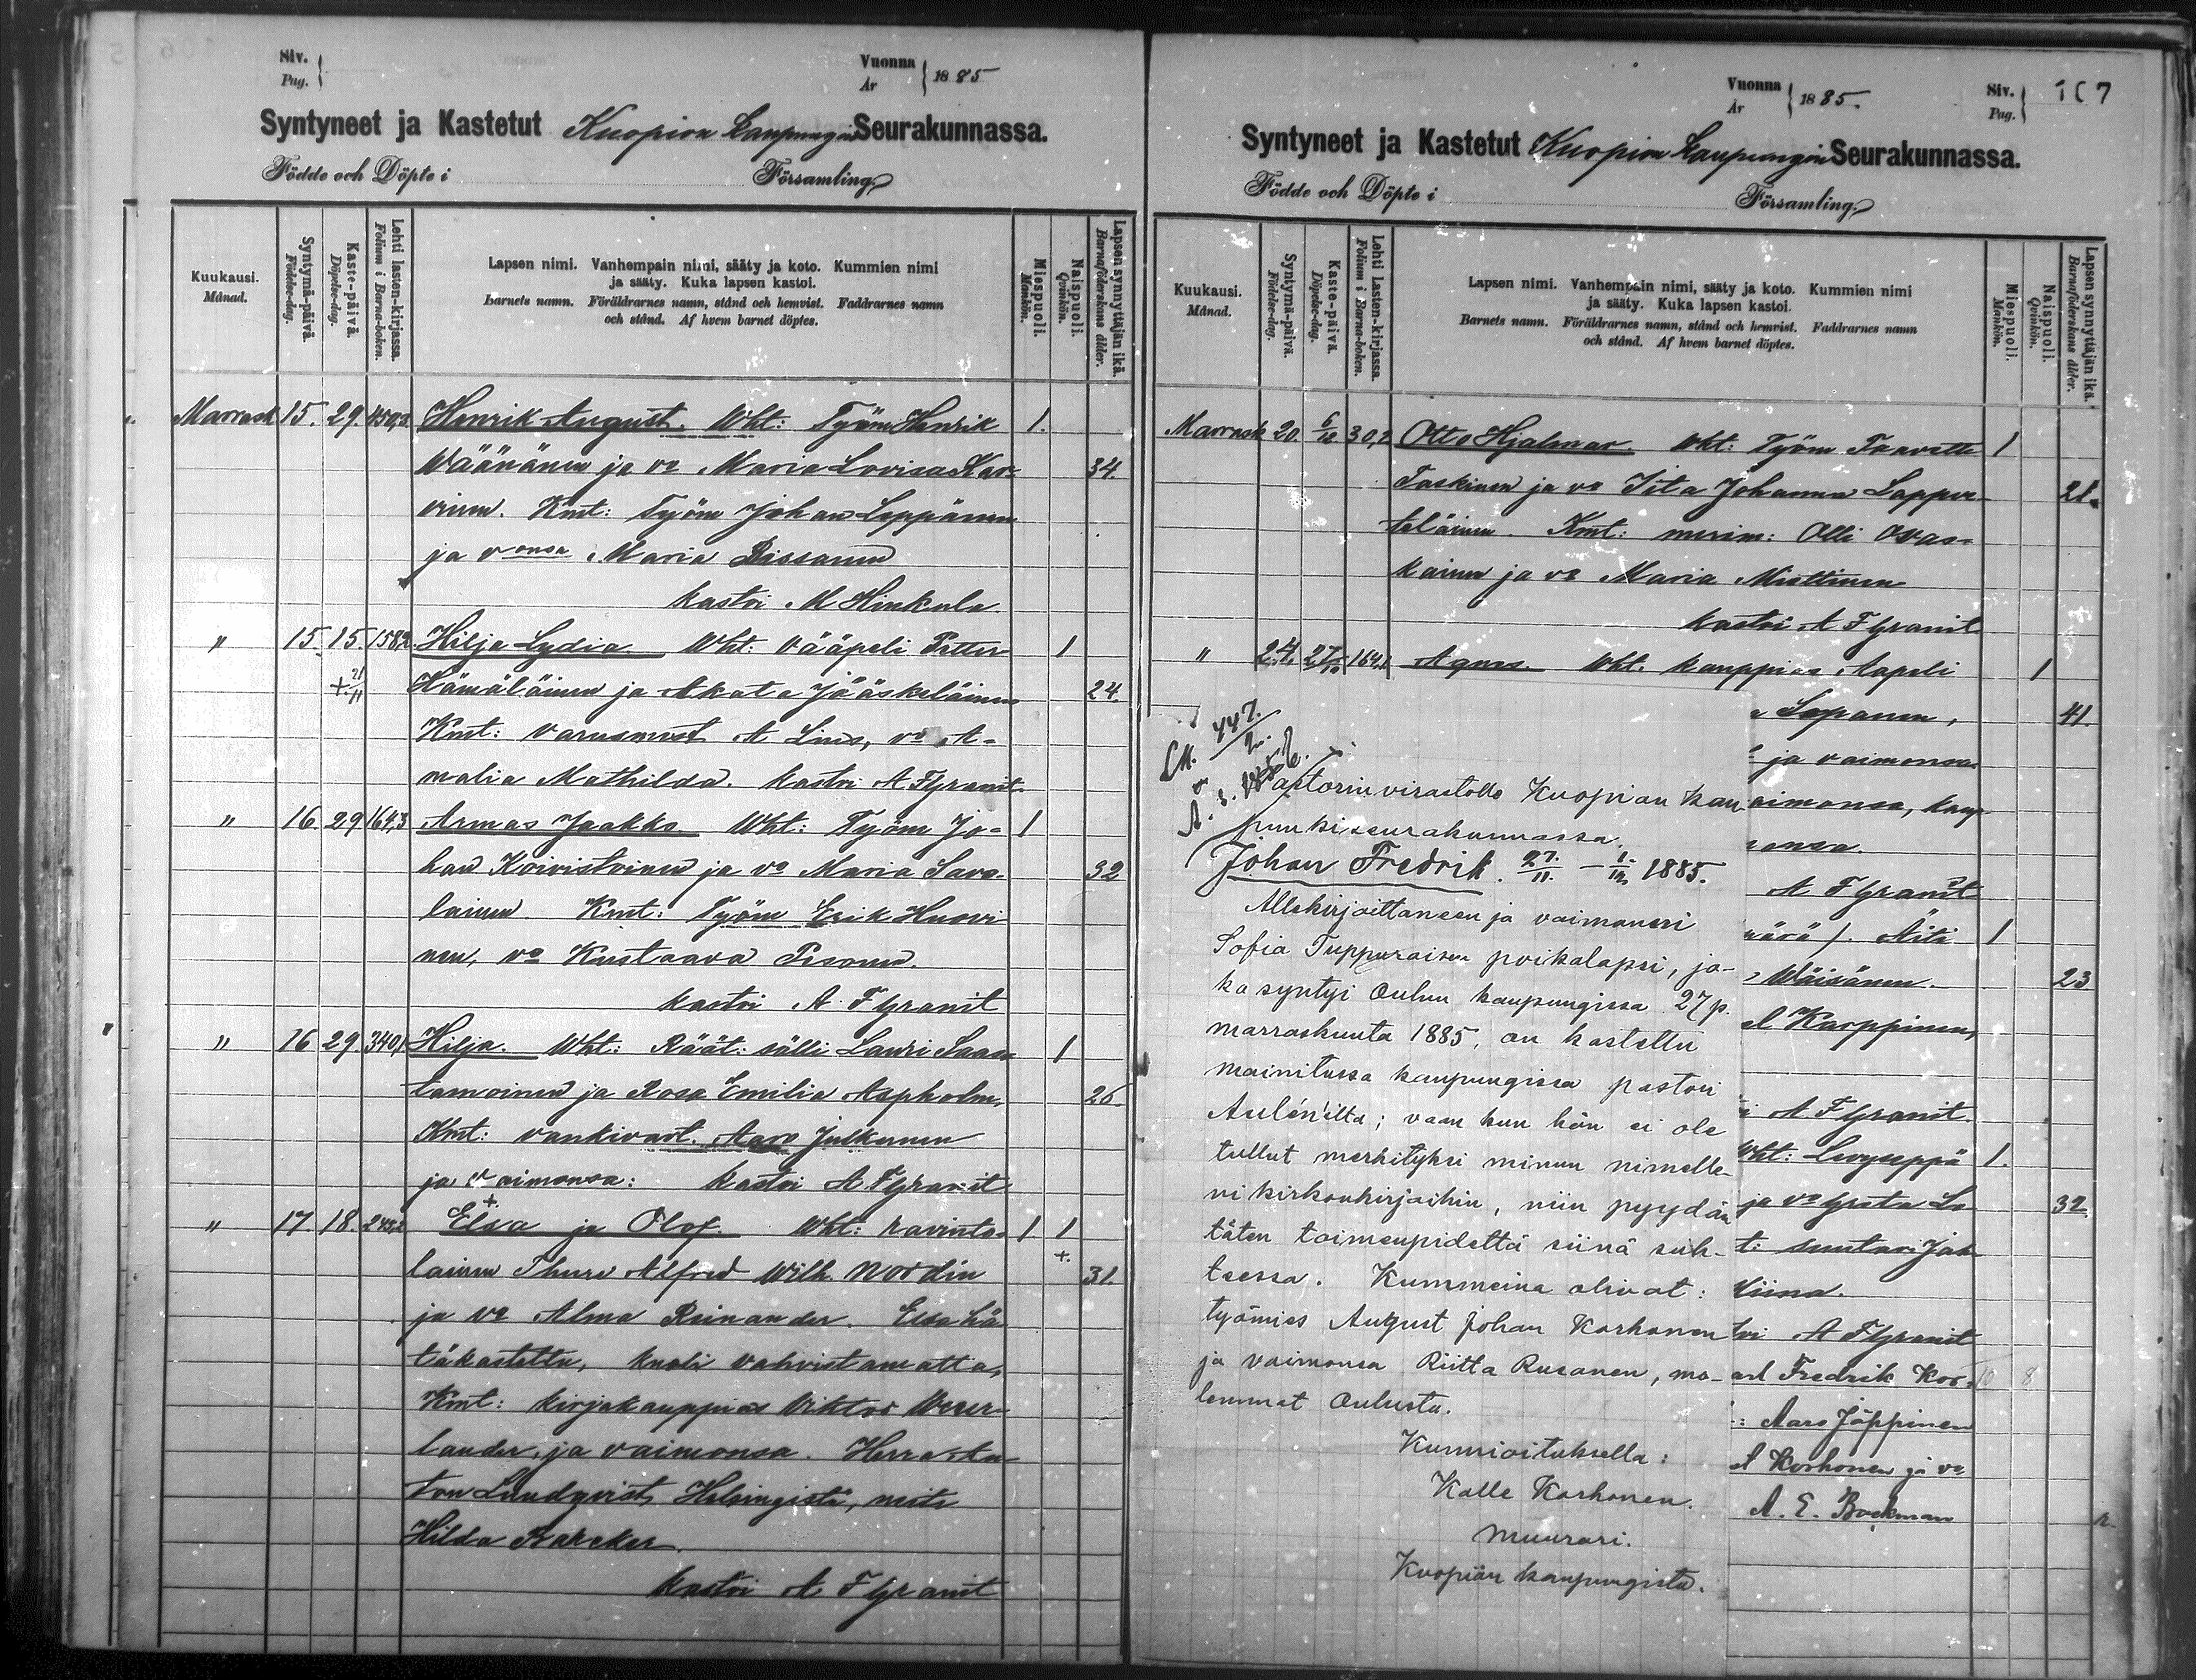 Siv.
Pag.
Vuonna
År
1885
Syntyneet ja Kastetut Kuopion Kaupungin Seurakunnassa.
Födde och Döpte i Församling
Kuukausi.
Månad.
Syntymä-päivä.
Födelse-dag.
Kaste-päivä.
Döpelse-dag.
Lehti lasten-kirjassa.
Folium i Barna-boken.
Lapsen nimi. Vanhempain nimi, sääty ja koto. Kummien nimi
ja sääty. Kuka lapsen kastoi.
Barnets namn. Föräldrarnes namn, stånd och hemvist. Faddrarnes namn
och stånd. Af hvem barnet döptes.
Miespuoli.
Mankön.
Naispuoli.
Qvinkön.
Lapsen synnyttäjän ikä.
Barnaföderskans ålder.
Marrask 15. 29. Henrik August. Wht: Työm Henrik 1.
Väänänen ja vo Maria Lovisa Kar- 34.
vinen. Kmt: Työm Johan Leppänen
ja vonsa Maria Rissanen
kastoi M Hinkula
" 15. 15. 158,2. Hilja Lydia. Wht: Vääpeli Petter 1
+ 21/11 Hämäläinen ja Akata Jääskeläinen 24.
Kmt: varusmest A Linis, vo A-
malia Mathilda. kastoi A F Granit
" 16. 29 164,3 Armas Jaakko. Wht: Työm Jo- 1
han Koivistoinen ja vo Maria Savo- 32
lainen Kmt: Työm Erik Huovi
nen, vo Kustaava Pesonen.
kastoi A F Granit
" 16 29 340,1 Hilja. Wht: Räät: sälli Lauri Saas 1
tamoinen ja Rosa Emilia Aspholm, 26.
Kmt: vankivart. Aaro Julkunen
ja vaimonsa: kastoi A F Granit
" 17. 18. Elsa + ja Olof. Wht: ravinto- 1 1
+.
lainen Thure Alfred Wilh. Nordin 31.
ja vo Alma Reinander. Elsa hä
täkastettu, kuoli vahvistamatta,
Kmt: kirjakauppias Viktor Weser-
lander, ja vaimonsa. Herra An
ton Lundqvist Helsingistä, neiti
Hilda
kastoi A F Granit
Vuonna
År
1885.
Siv.
Pag.
107
Syntyneet ja Kastetut Kuopion Kaupungin Seurakunnassa.
Födde och Döpte i Församling
Kuukausi.
Månad.
Syntymä-päivä.
Födelse-dag.
Kaste-päivä.
Döpelse-dag.
Lehti Lasten-kirjassa.
Folium i Barna-boken.
Lapsen nimi. Vanhempain nimi, sääty ja koto. Kummien nimi
ja sääty. Kuka lapsen kastoi.
Barnets namn. Föräldrarnes namn, stånd och hemvist. Faddrarnes namn
och stånd. Af hvem barnet döptes.
Miespuoli.
Mankön.
Naispuoli.
Qvinkön.
Lapsen synnyttäjän ikä.
Barnaföderskans ålder.
Marrask 20. 6/12 30,2 Otto Hjalmar. Wht: Työm Taavetti 1
Taskinen ja vo Iita Johanna Lappe- 21.
teläinen. Kmt: merim: Olli Ovas-
kainen ja vo Maria Miettinen
kastoi A F Granit
" 24. 27/12 164,1 Agnes. Wht: kauppias Aapeli 1
Lepänen, 41.
ja vaimonsa
aimonsa, kaup
onsa.
A F Granit
närä). Äiti 1
Wäisänen. 23
el Karppinen,
A F Granit
Wht: Levyseppä 1.
ja vo Greta La 32.
t: suutari Jak
Kiina.
toi A F Granit
Fredrik Kor-
: Aaro Jäppinen
Korhonen ja vo
A. E. Bockman
LK. 447.
Pastorin virastolle Kuopion kau
punkiseurakunnassa.
Johan Fredrik. 27./11. – 1./12. 1885.
Allekirjoittaneen ja vaimoneri
Sofia Tuppuraisen poikalapsi, jo-
ka syntyi Oulun kaupungissa 27 p.
marraskuuta 1885, on kastettu
mainitussa kaupungissa pastori
Aulén'ilta; vaan kun hän ei ole
tullut merkityksi minun nimelle-
ni kirkonkirjoihin, niin pyydän
täten toimenpidettä siinä suh-
teessa. Kummeina olivat:
työmies August Johan Korhonen
ja vaimonsa Riitta Rusanen, mo-
lemmat Oulusta.
Kunnioituksella:
Kalle Korhonen.
muurari.
Kuopion kaupungista.